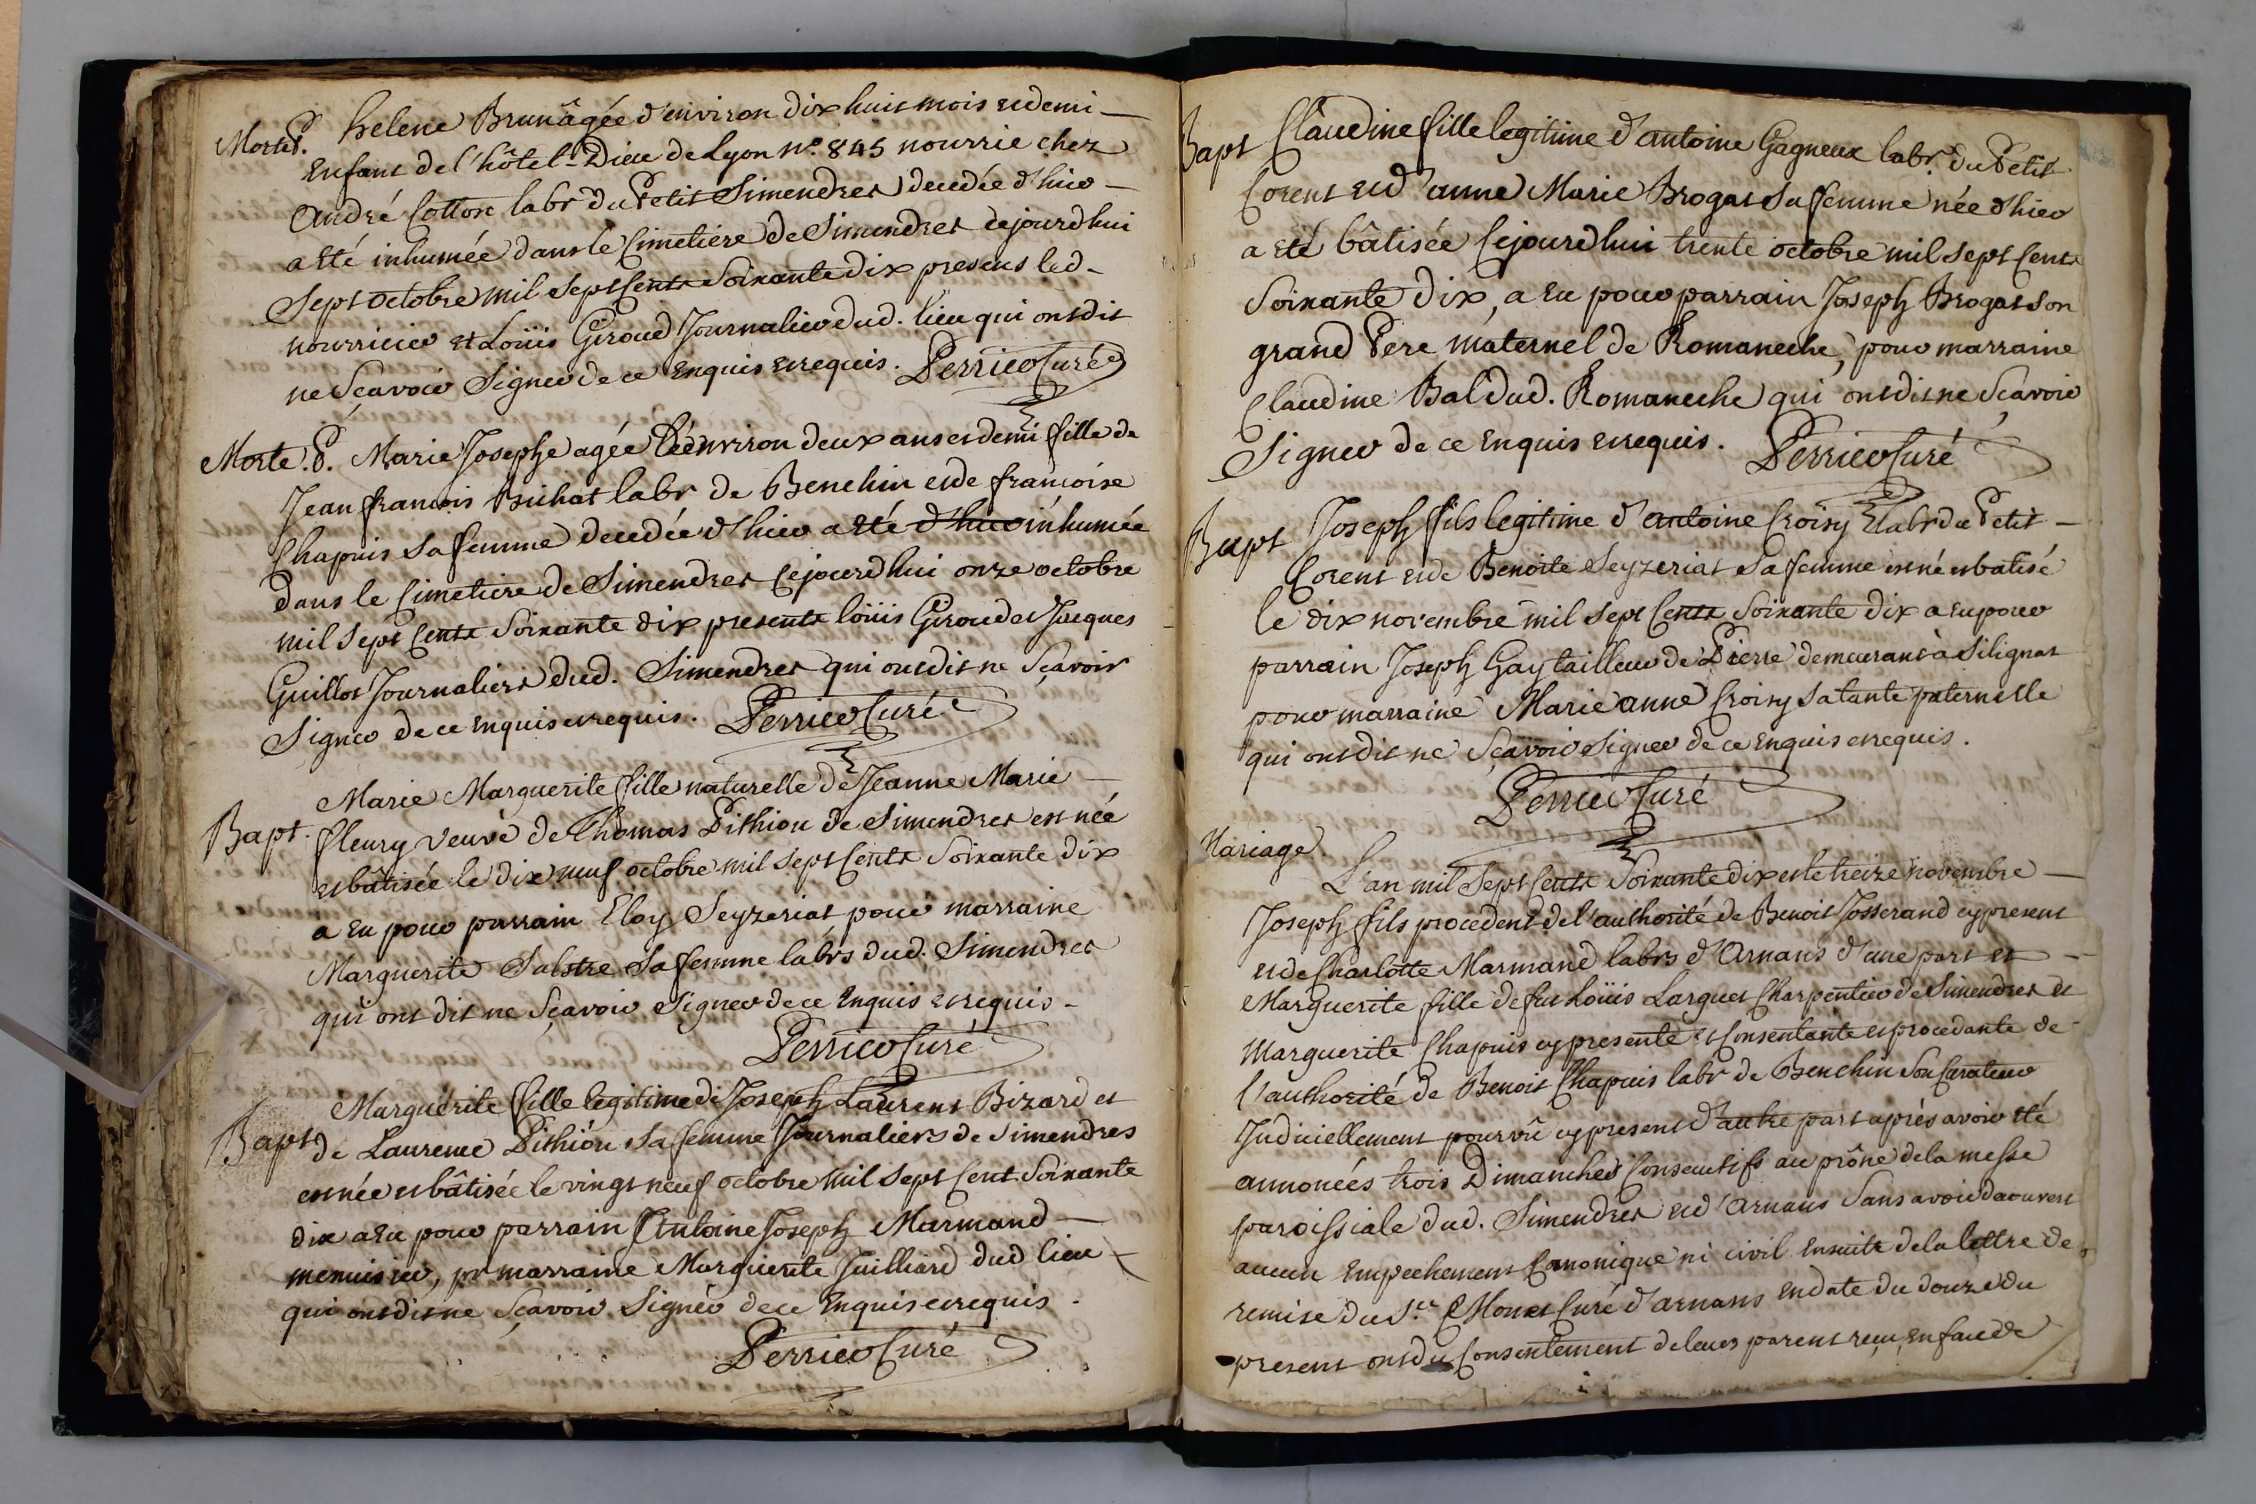 Morte P. helene Brun âgée d'environ dix huit mois et demi
Enfant de l'hôtel-Dieu de Lyon N°. 845 nourrie chez
André Cotton labr du Petit Simendres decedée d'hier
a eté inhumée dans le Cimetiere de Simendres cejourdhui
Sept octobre mil sept Cents Soixante dix presens led.
nourricier et Loüis Giroud Journalier dud. lieu qui ont dit
ne Sçavoir Signer de ce Enquis et requis. Perrier Curé
Morte. P. Marie Josephe agée d'environ deux ans et demi fille de
Jean francois Buhat labr de Benchin et de francoise
Chapuis Sa femme decedée d'hier a eté d'hier inhumée
dans le Cimetiere de Simendres Cejourdhui onze octobre
mil sept Cents Soixante dix presents loüis Giroud et Jacques
Guillot Journaliers dud. Simendres qui ont dit ne Sçavoir
Signer de ce Enquis et requis. Perrier Curé
Marie Marguerite fille naturelle de Jeanne Marie
Bapt. fleury veuve de Thomas Pithiou de Simendres est née
et bâtisée le dix neuf octobre mil sept Cents Soixante dix
a eu pour parrain Eloy Seyzeriat pour marraine
Marguerite Salstre Sa femme labrs dud. Simendres
qui ont dit ne Sçavoir Signer de ce Enquis et requis.
Perrier Curé
Marguerite fille legitime de Joseph Laurent Bizard et
Bapt de Laurence Pithiou Sa femme Journaliers de Simendres
est née et bâtisée le vingt neuf octobre mil sept Cent Soixante
dix a eu pour parrain Antoine Joseph Marmand
menuisier, pr marraine Marguerite Juilliard dud lieu
qui ont dit ne Sçavoir Signer de ce Enquis et requis.
Perrier Curé
Bapt Claudine fille legitime d'antoine Gagneux labr. du Petit
Corent et d'anne Marie Brogat Sa femme née d'hier
a eté bâtisée Cejourdhui trente octobre mil sept Cents
Soixante dix, a eu pour parrain Joseph Brogat Son
grand Pere maternel de Romaneche, pour marraine
Claudine Bal dud. Romaneche qui ont dit ne Sçavoir
Signer de ce Enquis et requis. Perrier Curé
Bapt Joseph fils legitime d'antoine Croisy labr du Petit
Corent et de Benoite Seyzeriat Sa femme est né et batisé
le dix novembre mil sept Cents Soixante dix a eu pour
parrain Joseph Gay tailleur de Pierre demeurant à Silignat
pour marraine Marie anne Croisy Sa tante paternelle
qui ont dit ne Sçavoir Signer de ce Enquis et requis.
Perrier Curé
Mariage.
L'an mil Sept Cents Soixante dix et le treize novembre
Joseph fils procedent de l'authorité de Benoit Josserand cy present
et de Charlotte Marmand labrs d'Arnans d'une part et
Marguerite fille de feu Loüis Larguet Charpentier de Simendres et
Marguerite Chapuis cy presente et Consentante et procedante de
l'authorité de Benoit Chapuis labr de Benchin Son Curateur
Judiciellement pourvû cy present d'autre part après avoir eté
annoncés trois Dimanches Consecutifs au prône de la messe
paroissiale dud. Simendres et d'Arnans Sans avoir decouvert
aucun Empechement Canonique ni civil Ensuite de la lettre de
remise du Sr. Monet Curé d'arnans En date du douze du
present ont du Consentement de leurs parent reçu En face de